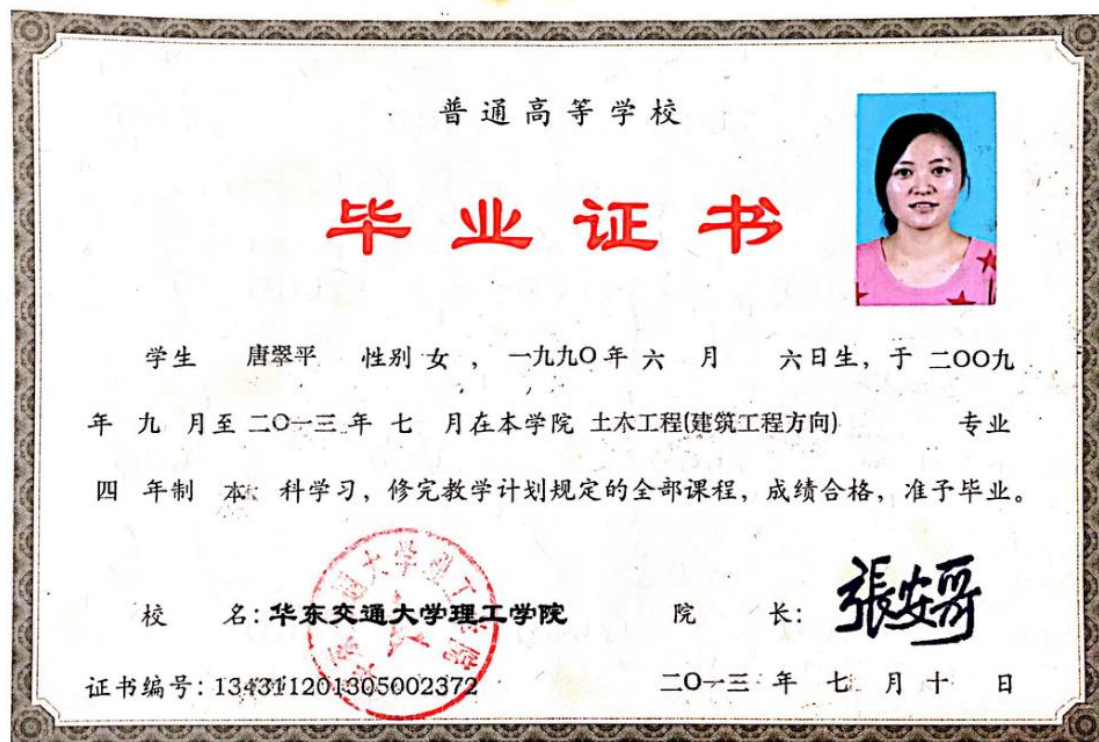 普通高等学校
毕业证书
学生 唐翠平 性别 女 ，一九九〇年 六 月 六日生，于 二〇〇九
年 九 月至 二〇一三 年 七 月在本学院 土木工程(建筑工程方向) 专业
四 年制 本 科学习，修完教学计划规定的全部课程，成绩合格，准予毕业。
校 名：华东交通大学理工学院 院 长：
证书编号：134311201305002372 二〇一三 年 七 月 十 日